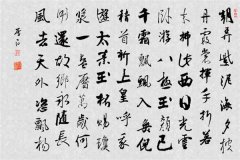 朝弄紫泥海夕披
丹霞裳揮手折若
木拂此西日光雲
臥游八極玉顏已
千霜飄飄入無倪
稽首祈上皇呼我
遊太素玉杯賜瓊
漿一餐歷萬歲何
用還故鄉永隨長
風去天外恣飄揚